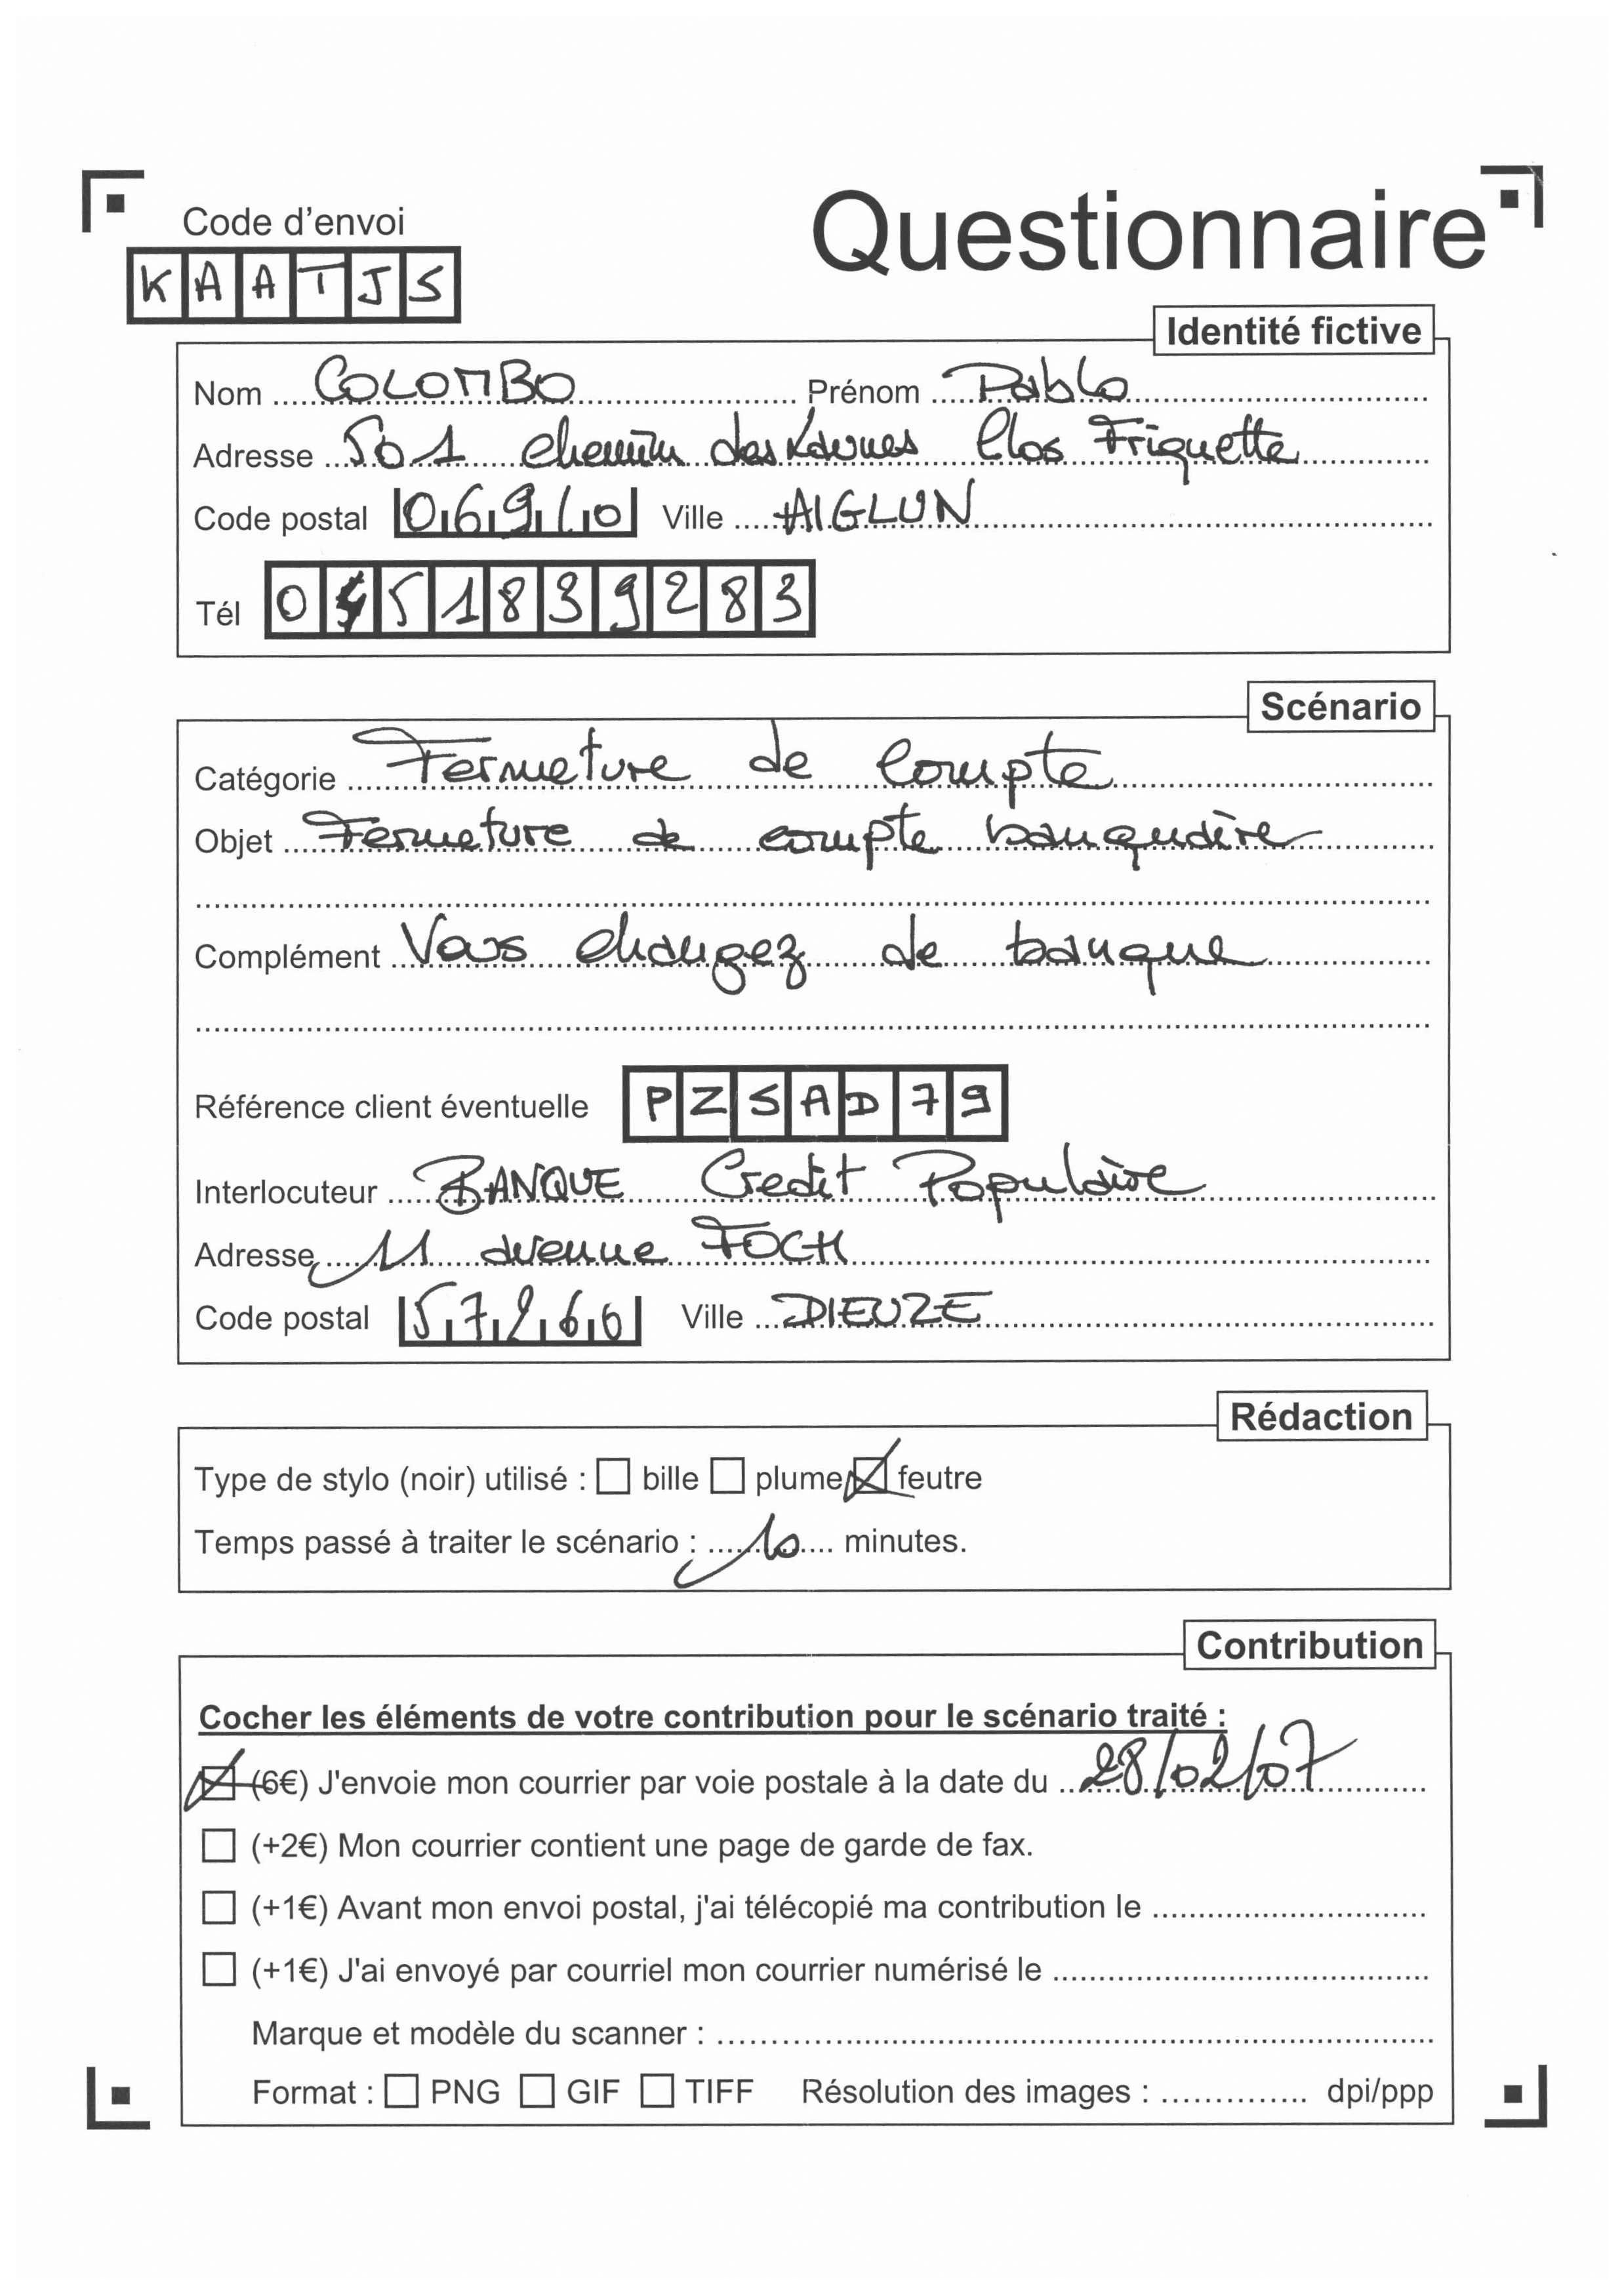 Code d'envoi
Questionnaire
KAATJS
Identité fictive
Nom COLOMBO Prénom Pablo
Adresse 501 chemin des Clos Friquette
Code postal 06910 Ville AIGLUN
Tél 0451839283
Scénario
Catégorie Fermeture de compte
Objet Fermeture de compte banquaire
Complément Vous changez de banque
Référence client éventuelle PZSAD79
Interlocuteur BANQUE Credit Populaire
Adresse 11 avenue FOCH
Code postal 57260 Ville DIEUZE
Rédaction
Type de stylo (noir) utilisé : bille plume feutre
Temps passé à traiter le scénario : 10 minutes.
Contribution
Cocher les éléments de votre contribution pour le scénario traité :
(6€) J'envoie mon courrier par voie postale à la date du 28/02/07
(+2€) Mon courrier contient une page de garde de fax.
(+1€) Avant mon envoi postal, j'ai télécopié ma contribution le
(+1€) J'ai envoyé par courriel mon courrier numérisé le
Marque et modèle du scanner :
Format : PNG GIF TIFF Résolution des images : dpi/ppp